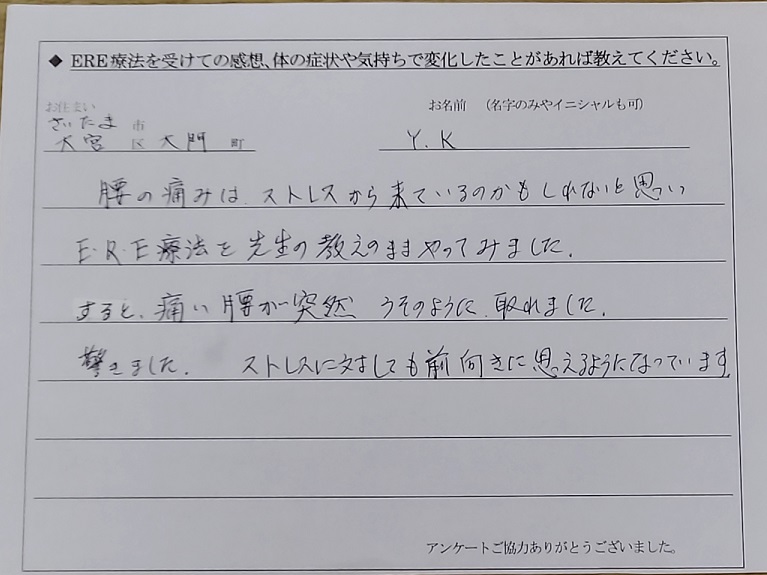 ◆ ERE療法を受けての感想、体の症状や気持ちで変化したことがあれば教えてください。
お住まい
お名前 （名字のみやイニシャルも可）
さいたま 市
大宮 区 大門 町
Y.K
腰の痛みは、ストレスから来ているのかもしれないと思い
E・R・E療法を先生の教えのままやってみました。
すると、痛い腰が突然 うそのように、取れました。
驚きました。 ストレスに対しても前向きに思えるようになっています。
アンケートご協力ありがとうございました。